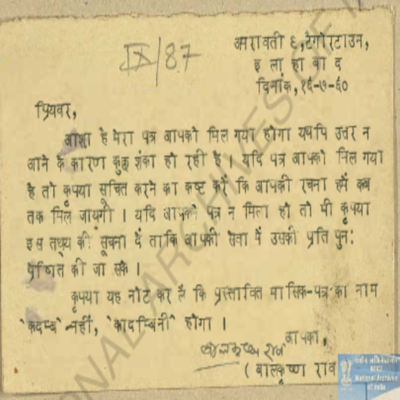 IX/87
अमरावती ६, टैगोरटाउन,
इलाहाबाद
दिनांक, १६-७-६०
प्रियवर,
आशा है मेरा पत्र आपको मिल गया होगा यद्यपि उत्तर न
आने के कारण कुछ शंका हो रही है । यदि पत्र आपको मिल गया
है तो कृपया सूचित करने का कष्ट करें कि आपकी रचना हमें कब
तक मिल जायगी । यदि आपको पत्र न मिला हो तो भी कृपया
इस तथ्य की सूचना दें ताकि आपकी सेवा में उसकी प्रति पुन:
प्रेषित की जा सके ।
कृपया यह नोट कर लें कि प्रस्तावित मासिक-पत्र का नाम
'कदम्ब' नहीं, 'कादम्बिनी' होगा ।
आपका,
बालकृष्ण राव
( बालकृष्ण राव
NATIONAL ARCHIVES OF